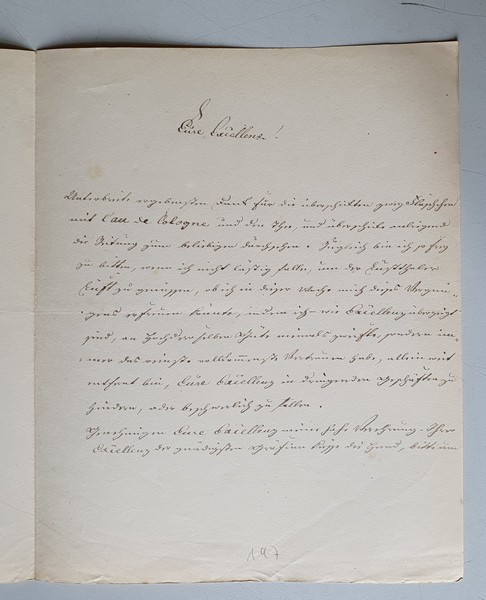 Eure Excellenz!
Unterbreite ergebensten Dank für die überschickten zwey Fläschchen
mit Eau de Cologne und den Thee, und überschicke anliegend
die Zeitung zum beliebigen durchsehen. Zugleich bin ich so frey
zu bitten, wenn ich nicht lästig falle, um der
Luft zu genießen, ob ich in dieser Woche mich dieses Vergnü-
gens erfreuen könnte, indem ich wie Excellenz überzeugt
sind, an Hochderselben Güte niemals zweifle, sondern im-
mer das vollkommenste Vertrauen habe, allein weit
entfernt bin, Eure Excellenz in dringenden Geschäften zu
hindern, oder beschwerlich zu fallen.
Genehmigen Eure Excellenz meine hohe Verehrung. Ihrer
Excellenz der gnädigsten Gräfinn küsse die Hand, bitte um
197